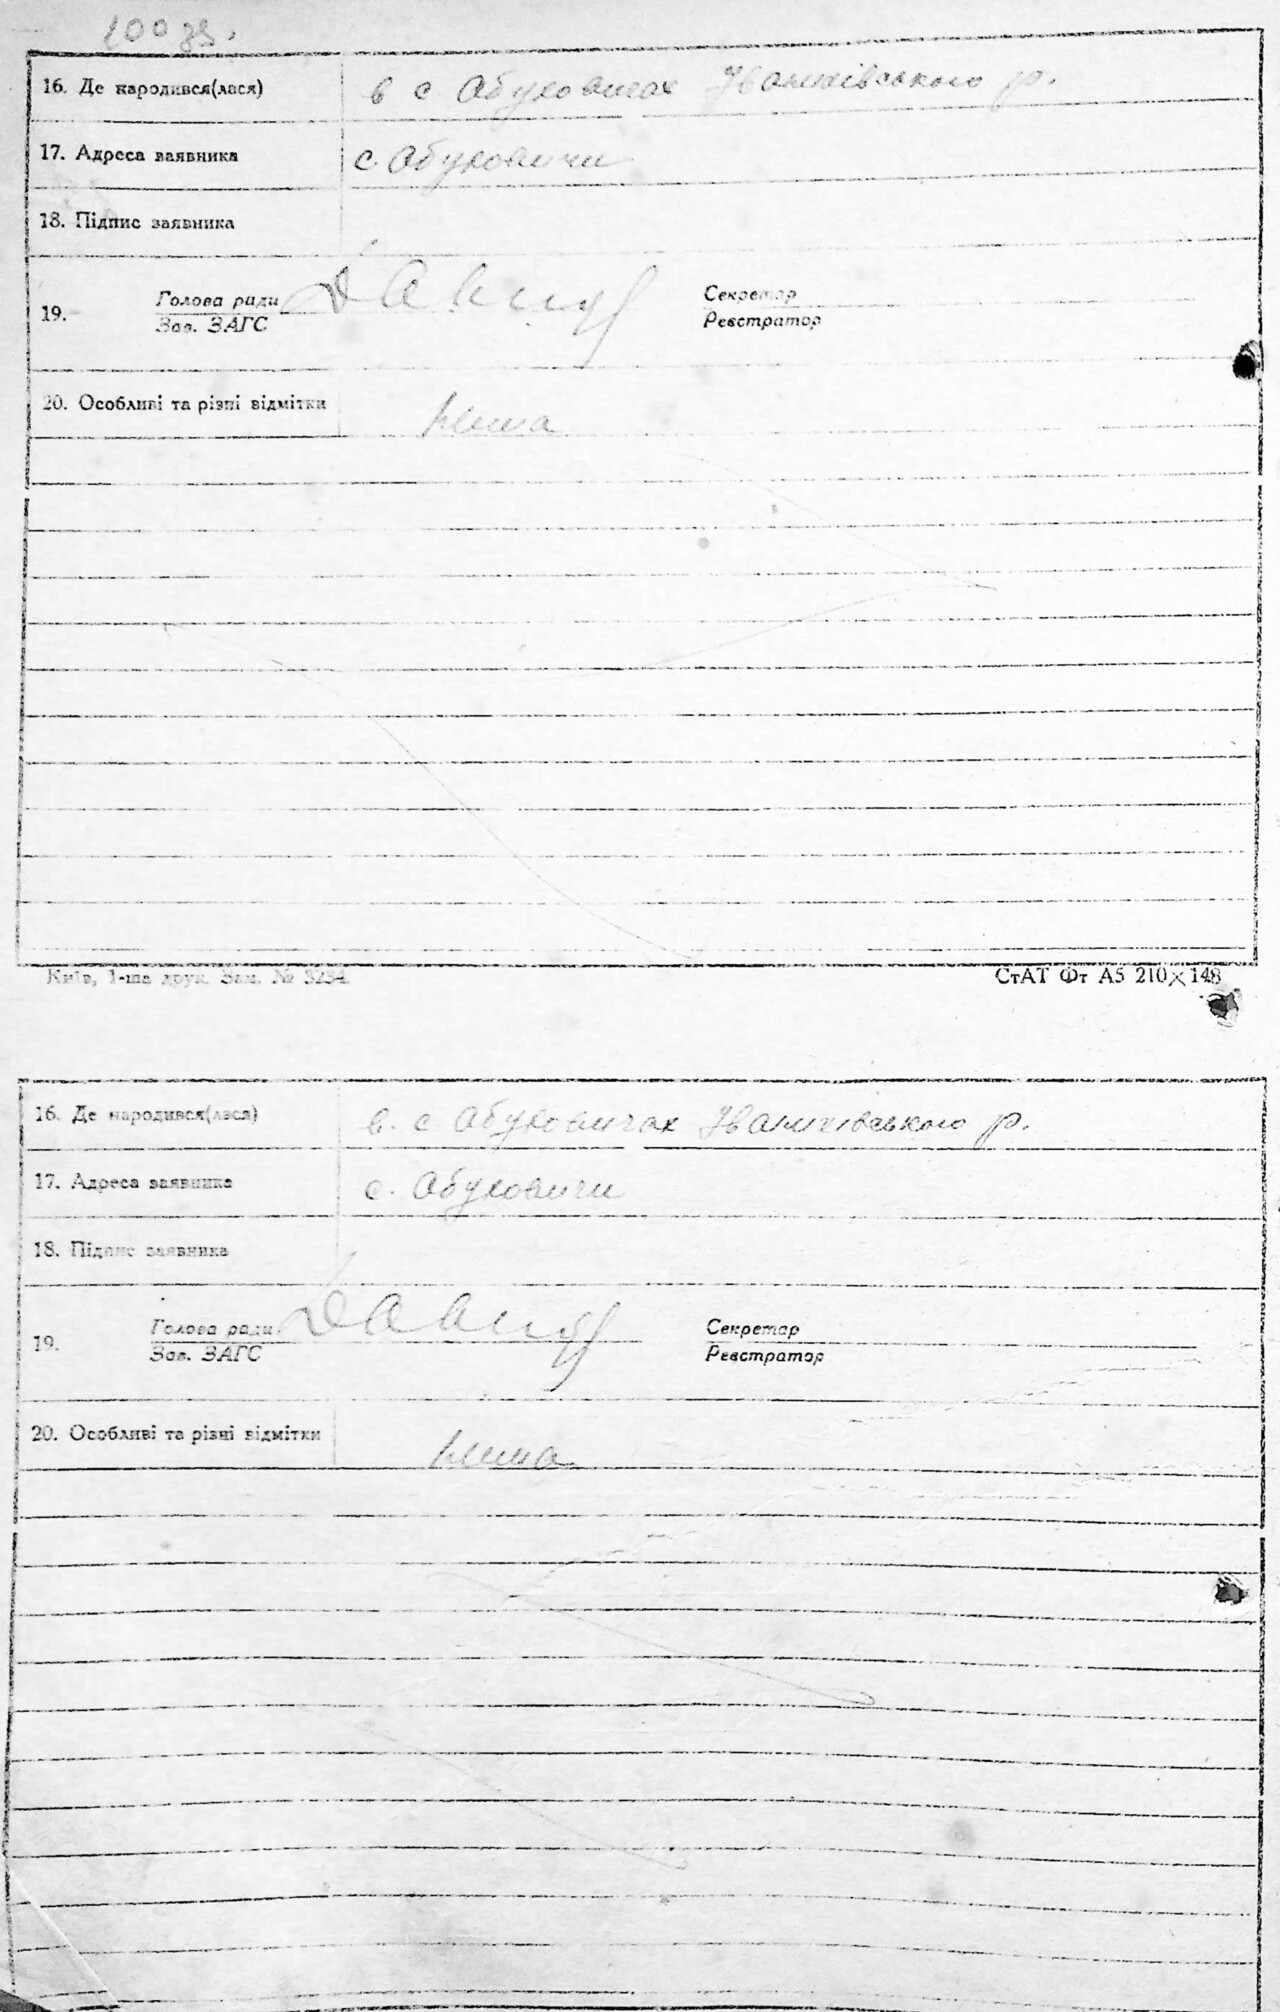 100 зв.
16. Де народився(лася) в с Обуховичах Іванківського р.
17. Адреса заявника с. Обуховичи
18. Підпис заявника
19. Голова ради
Зав. ЗАГС
Секретар
Реєстратор
20. Особливі та різні відмітки нема
Київ, 1-ша друк. Зам. № 3234.
СтАТ Фт А5 210×148
16. Де народився(лася) в. с Обуховичах Іванківського р.
17. Адреса заявника с. Обуховичи
18. Підпис заявника
19. Голова ради
Зав. ЗАГС
Секретар
Реєстратор
20. Особливі та різні відмітки нема